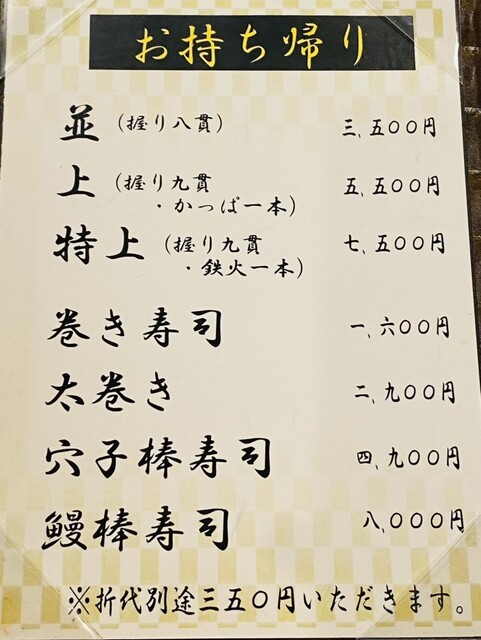 お持ち帰り
並（握り八貫） 三、五〇〇円
上（握り九貫 五、五〇〇円
・かっぱ一本）
特上（握り九貫 七、五〇〇円
・鉄火一本）
巻き寿司 一、六〇〇円
太巻き 二、九〇〇円
穴子棒寿司 四、九〇〇円
鰻棒寿司 八、〇〇〇円
※折代別途三五〇円いただきます。